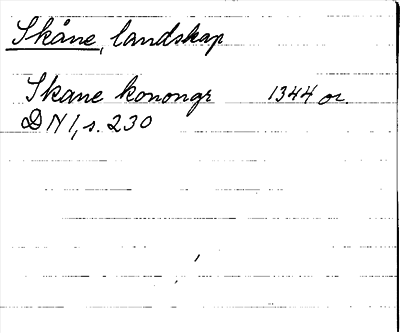 Skåne, landskap
Skane konongr 1344 or.
DN 1, s. 230